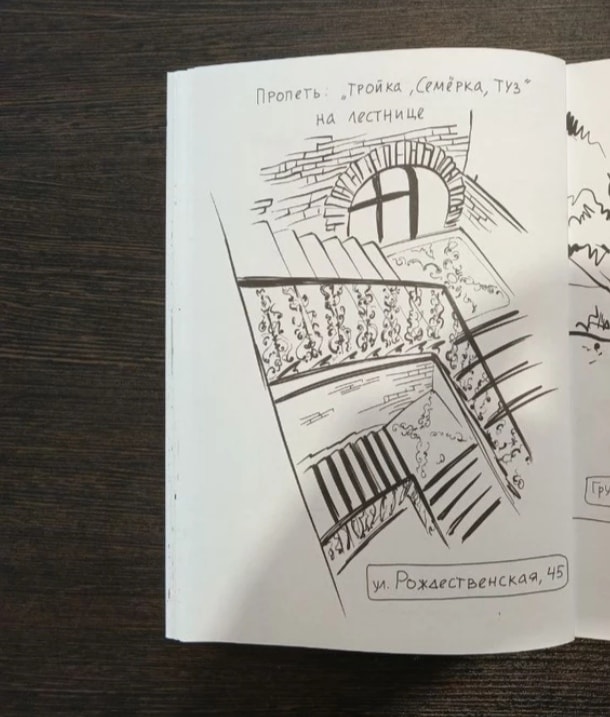 Пропеть: „Тройка, Семёрка, Туз“
на лестнице
ул. Рождественская, 45
Гру